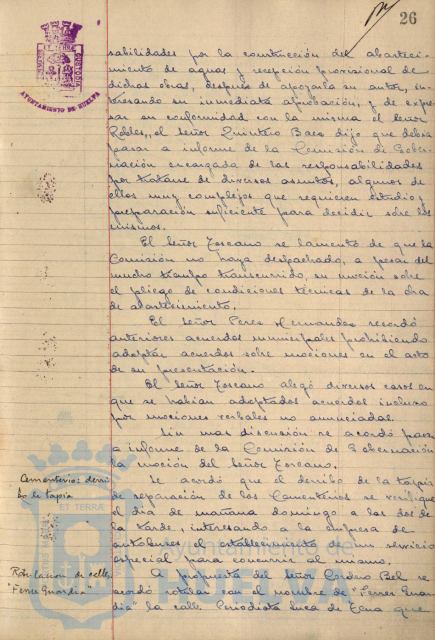 26
AYUNTAMIENTO DE HUELVA
sabilidades por la construcción del abasteci-
miento de aguas y recepción provisional de
dichas obras, después de apoyarla su autor, in-
teresando su inmediata aprobación, y de expre-
sar su conformidad con la misma el señor
Robles, el señor Quintero Baez dijo que debía
pasar a informe de la Comisión de Gober-
nación encargada de las responsabilidades
por tratarse de diversos asuntos, algunos de
ellos muy complejos que requieren estudio y
preparación suficiente para decidir sobre los
mismos.
El Señor Toscano se lamentó de que la
Comisión no haya despachado, a pesar del
mucho tiempo transcurrido, su moción sobre
el pliego de condiciones técnicas de la obra
de abastecimiento.
El Señor Peres Hernandez recordó
anteriores acuerdos municipales prohibiendo
adoptar acuerdos sobre mociones en el acto
de su presentación.
El Señor Toscano alegó diversos casos en
que se habían adoptados acuerdos incluso
por mociones verbales no anunciadas.
Sin mas discusión se acordó pasar
a informe de la Comisión de Gobernación
la moción del señor Toscano.
Cementerio: derri-
bo de tapia
Se acordó que el derribo de la tapia
de separación de los Cementerios se verifique
el día de mañana domingo a las dos de
la tarde, interesando a la empresa de
autobuses el establecimiento de un servicio
especial para concurrir al mismo.
Rotulación de calle
"Ferrer Guardia"
A propuesta del señor Cordero Bel se
acordó rotular con el nombre de "Ferrer Guar-
dia" la calle Periodista Luca de Tena que